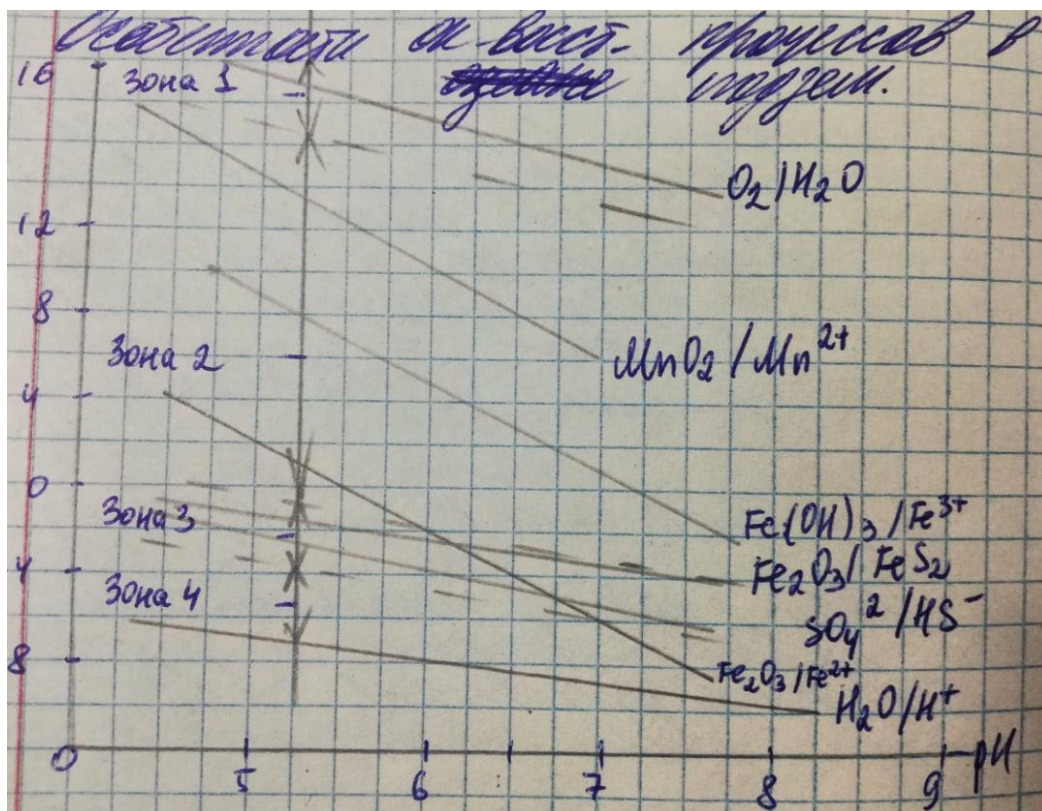 Особенности ок-восст. процессов в
подзем.
16
Зона 1
O₂/H₂O
12
8
Зона 2
MnO₂/Mn²⁺
4
0
Зона 3
Fe(OH)₃/Fe³⁺
4
Fe₂O₃/FeS₂
Зона 4
SO₄²/HS⁻
8
Fe₂O₃/Fe²⁺
H₂O/H⁺
0 5 6 7 8 9 pH